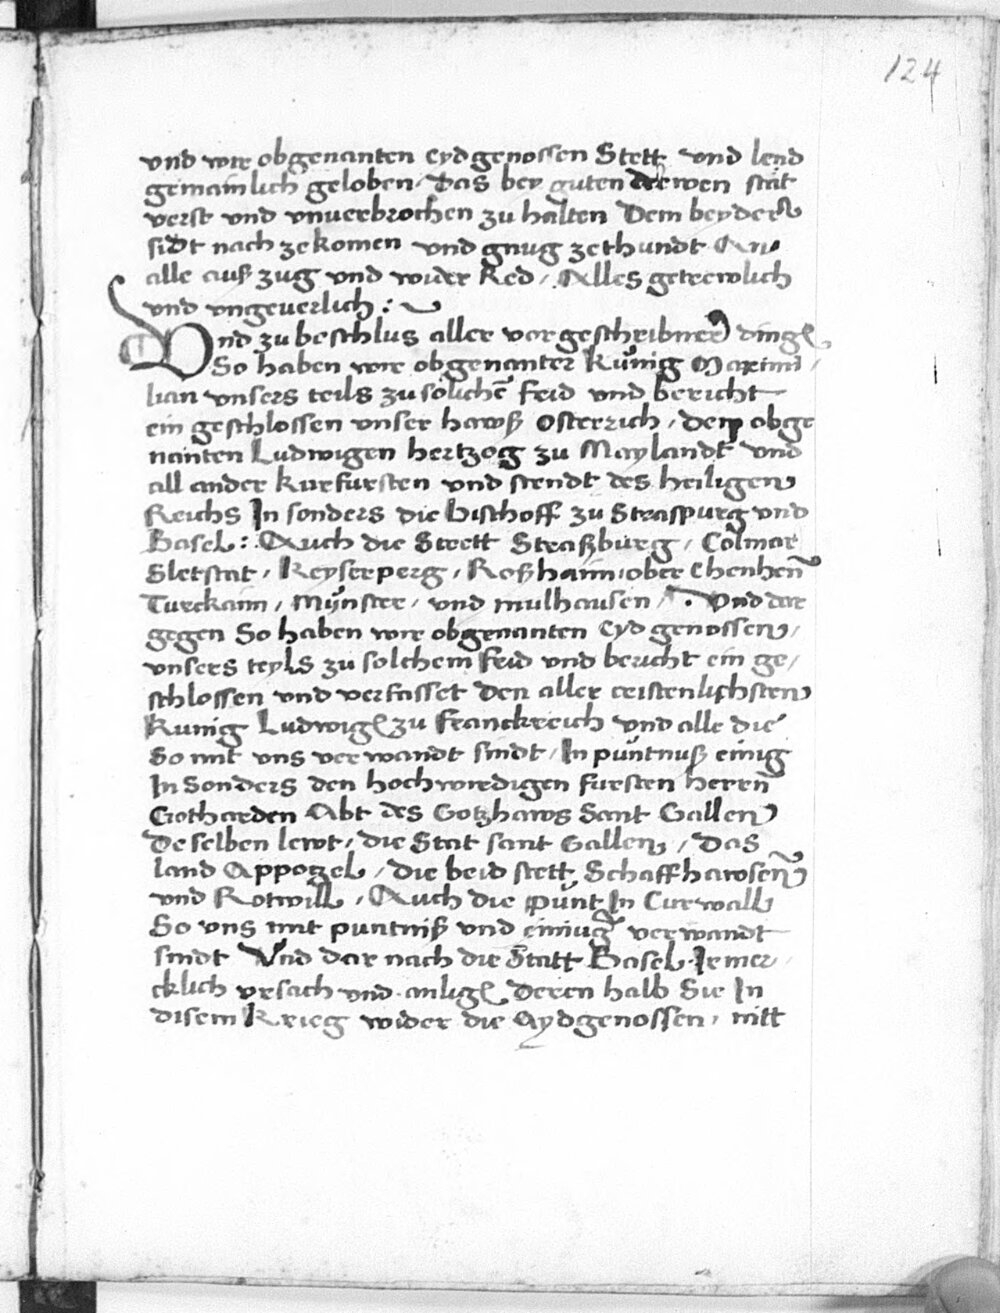 124
vnd wir obgenanten eydgenossen Stett vnd lend
gemainlich geloben, Das bey guten trewen stät
verst vnd vnuerbrochen zu halten Dem beyder
sidt nach zekomen vnd gnug zethundt An
alle außzug vnd wider Red, Alles getrewlich
vnd vngeuerlich :
Vnd zu beschlus aller vorgeschribner ding
So haben wir obgenanter Kunig Maximi,
lian vnsers teils zu sölichē frid vnd bericht
ein geschlossen vnser hawß Osterrich, den obge
nanten Ludwigen hertzog zu Maylandt vnd
all ander kurfursten vnd stendt des heiligen
Reichs In sonders die bischoff zu Straspurg vnd
Basel : Auch die Stett Straßburg, Colmar
Sletstat, Keyserperg, Roßhaim, ober Ehenhen
Turckaim, Mÿnster, vnd mulhausen, Vnd dar
gegen So haben wir obgenanten Eydgenossen,
vnsers teyls zu solchem frid vnd bericht ein ge,
schlossen vnd verfasset den aller cristenlichsten
Kunig Ludwig zu Franckreich vnd alle die
So mit vns verwandt sindt, In puntnuß einig
In Sonders den hochwirdigen fursten herrn
Gotharden Abt des Gotzhaws Sant Gallen
De selben lewt, die Stat sant Gallen, Das
land Appotzel, die beid stett Schaffhawsen
vnd Rotwill, Auch die pünt In Curwall
So vns mit puntniß vnd einiug verwandt
sindt Vnd dar nach die Statt Basel Ir mer,
cklich vrsach vnd anlig deren halb Sie In
disem Krieg wider die Aydgenossen, nitt